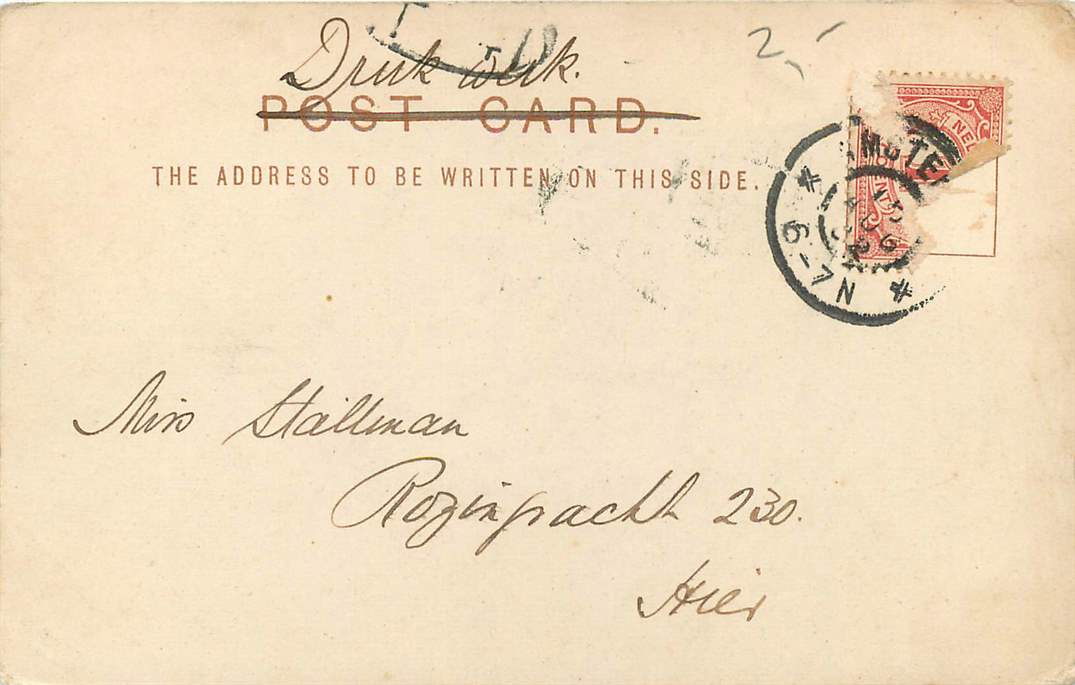 2,-
Druk werk.
POST CARD.
THE ADDRESS TO BE WRITTEN ON THIS SIDE.
NEL
AMSTE
6-7N
Miss Stallman
Rozingracht 230.
Hier